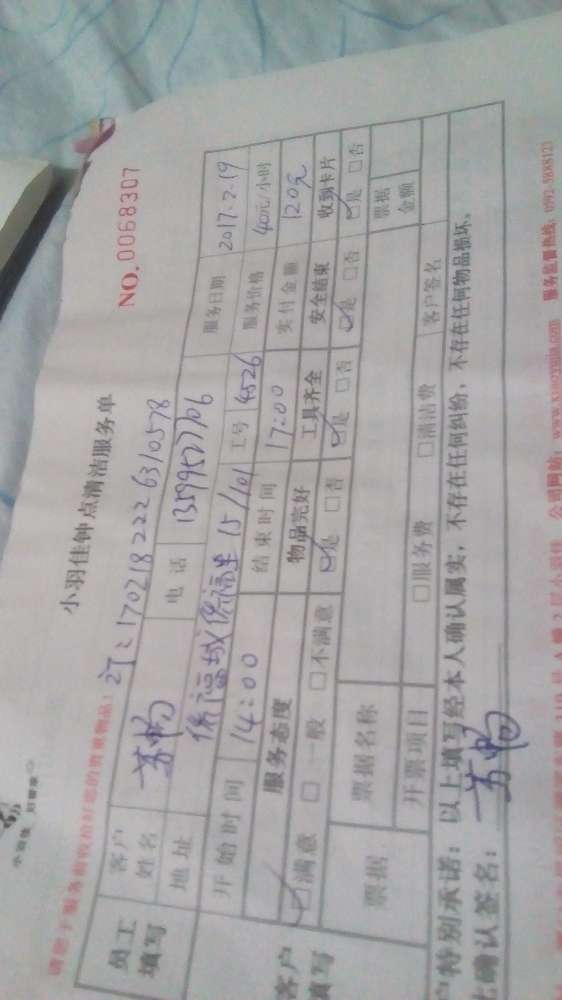 小羽佳
小羽佳钟点清洁服务单
NO.0068307
请您于服务前收拾好您的贵重物品!
订:1702182226310578
员工填写
客户姓名 苏畅 电话 13599527706 服务日期 2017.2.19
地址 侨福城侨福里15/101 工号 4526 服务价格 40元/小时
开始时间 14:00 结束时间 17:00 实付金额 120元
客户填写
服务态度 物品完好 工具齐全 安全结束 收到卡片
☑满意 □一般 □不满意 ☑是 □否 ☑是 □否 ☑是 □否 ☑是 □否
票据 票据名称 票据金额
开票项目 □服务费 □清洁费 客户签名
户特别承诺:以上填写经本人确认属实,不存在任何纠纷,不存在任何物品损坏。
确认签名:苏畅
公司网站:www.xiaoyujia.com 服务监督热线:0592-5888121